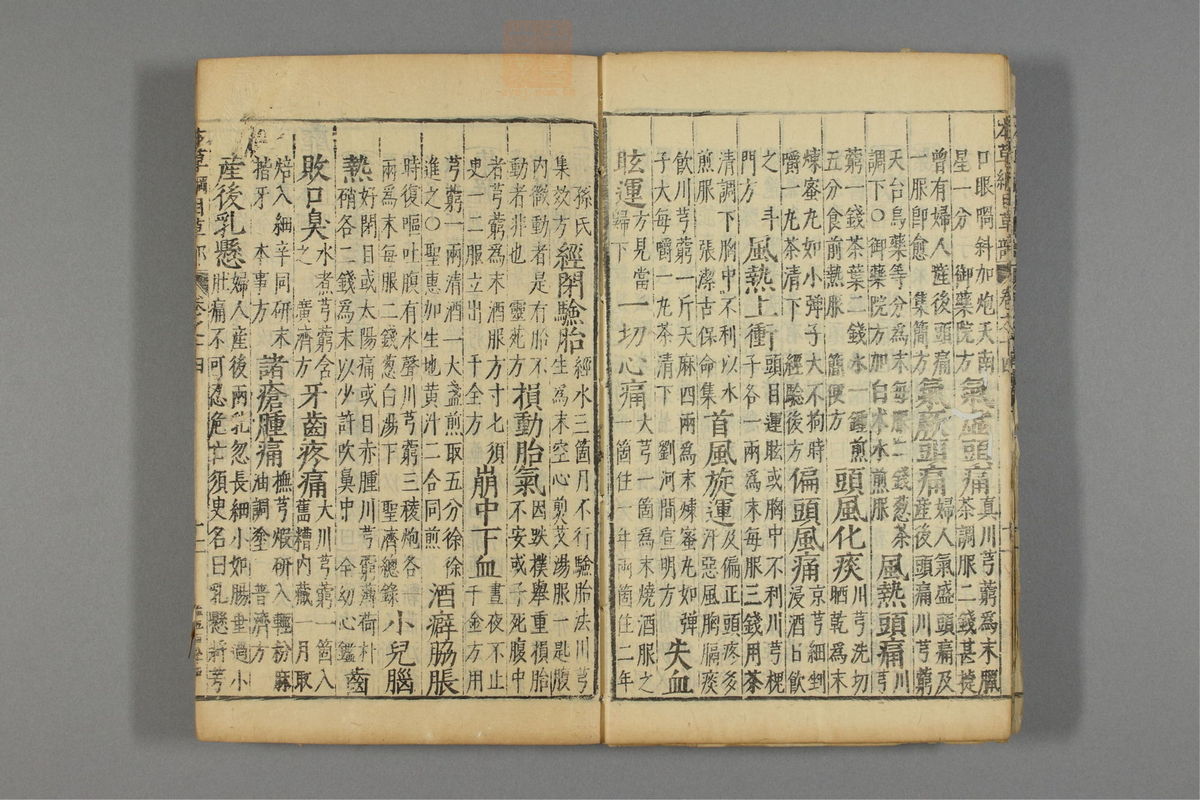 本草綱目草部 卷之十四
口眼喎斜加炮天南星一分 御藥院方 氣虛頭痛 真川芎藭為末臘茶調服二錢甚捷
曾有婦人產後頭痛一服即愈 集簡方 氣厥頭痛 婦人氣盛頭痛及產後頭痛川芎藭
天台烏藥等分為末每服二錢葱茶調下○御藥院方加白朮水煎服 風熱頭痛 川芎
藭一錢茶葉二錢水一鍾煎五分食前熱服 簡便方 頭風化痰 川芎洗切晒乾為末
煉蜜丸如小彈子大不拘時嚼一丸茶清下 經驗後方 偏頭風痛 京芎細剉浸酒日飲
之 斗門方 風熱上衝 頭目運眩或胸中不利川芎槐子各一兩為末每服三錢用茶
清調下胸中不利以水煎服 張潔古保命集 首風旋運 及偏正頭疼多汗惡風胸膈痰
飲川芎藭一斤天麻四兩為末煉蜜丸如彈子大每嚼一丸茶清下 劉河間宣明方 失血
眩運 方見當歸下 一切心痛 大芎一箇為末燒酒服之一箇住一年兩箇住二年
孫氏集效方 經閉驗胎 經水三箇月不行驗胎法川芎生為末空心煎艾湯服一匙腹
內微動者是有胎不動者非也 靈苑方 損動胎氣 因跌撲舉重損胎不安或子死腹中
者芎藭為末酒服方寸匕須臾一二服立出 千金方 崩中下血 晝夜不止千金方用
芎藭一兩清酒一大盞煎取五分徐徐進之○聖惠加生地黃汁二合同煎 酒癖脇脹
時復嘔吐腹有水聲川芎藭三稜炮各兩為末每服二錢葱白湯下 聖濟總錄 小兒腦
熱 好閉目或太陽痛或目赤腫川芎藭薄荷朴硝各二錢為末以少許吹鼻中 全幼心鑑 齒
敗口臭 水煮芎藭含之 廣濟方 牙齒疼痛 大川芎藭一箇入舊糟內藏一月取
焙入細辛同研末揩牙 本事方 諸瘡腫痛 撫芎煅研入輕粉麻油調塗 普濟方
產後乳懸 婦人產後兩乳忽長細小如腸垂過小肚痛不可忍危亡須臾名曰乳懸將芎
本草綱目草部 卷之十四